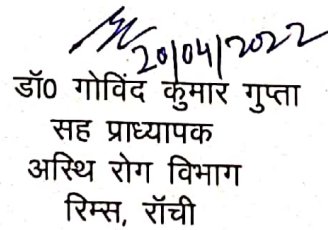 20/04/2022
डॉ0 गोविंद कुमार गुप्ता
सह प्राध्यापक
अस्थि रोग विभाग
रिम्स, रॉची